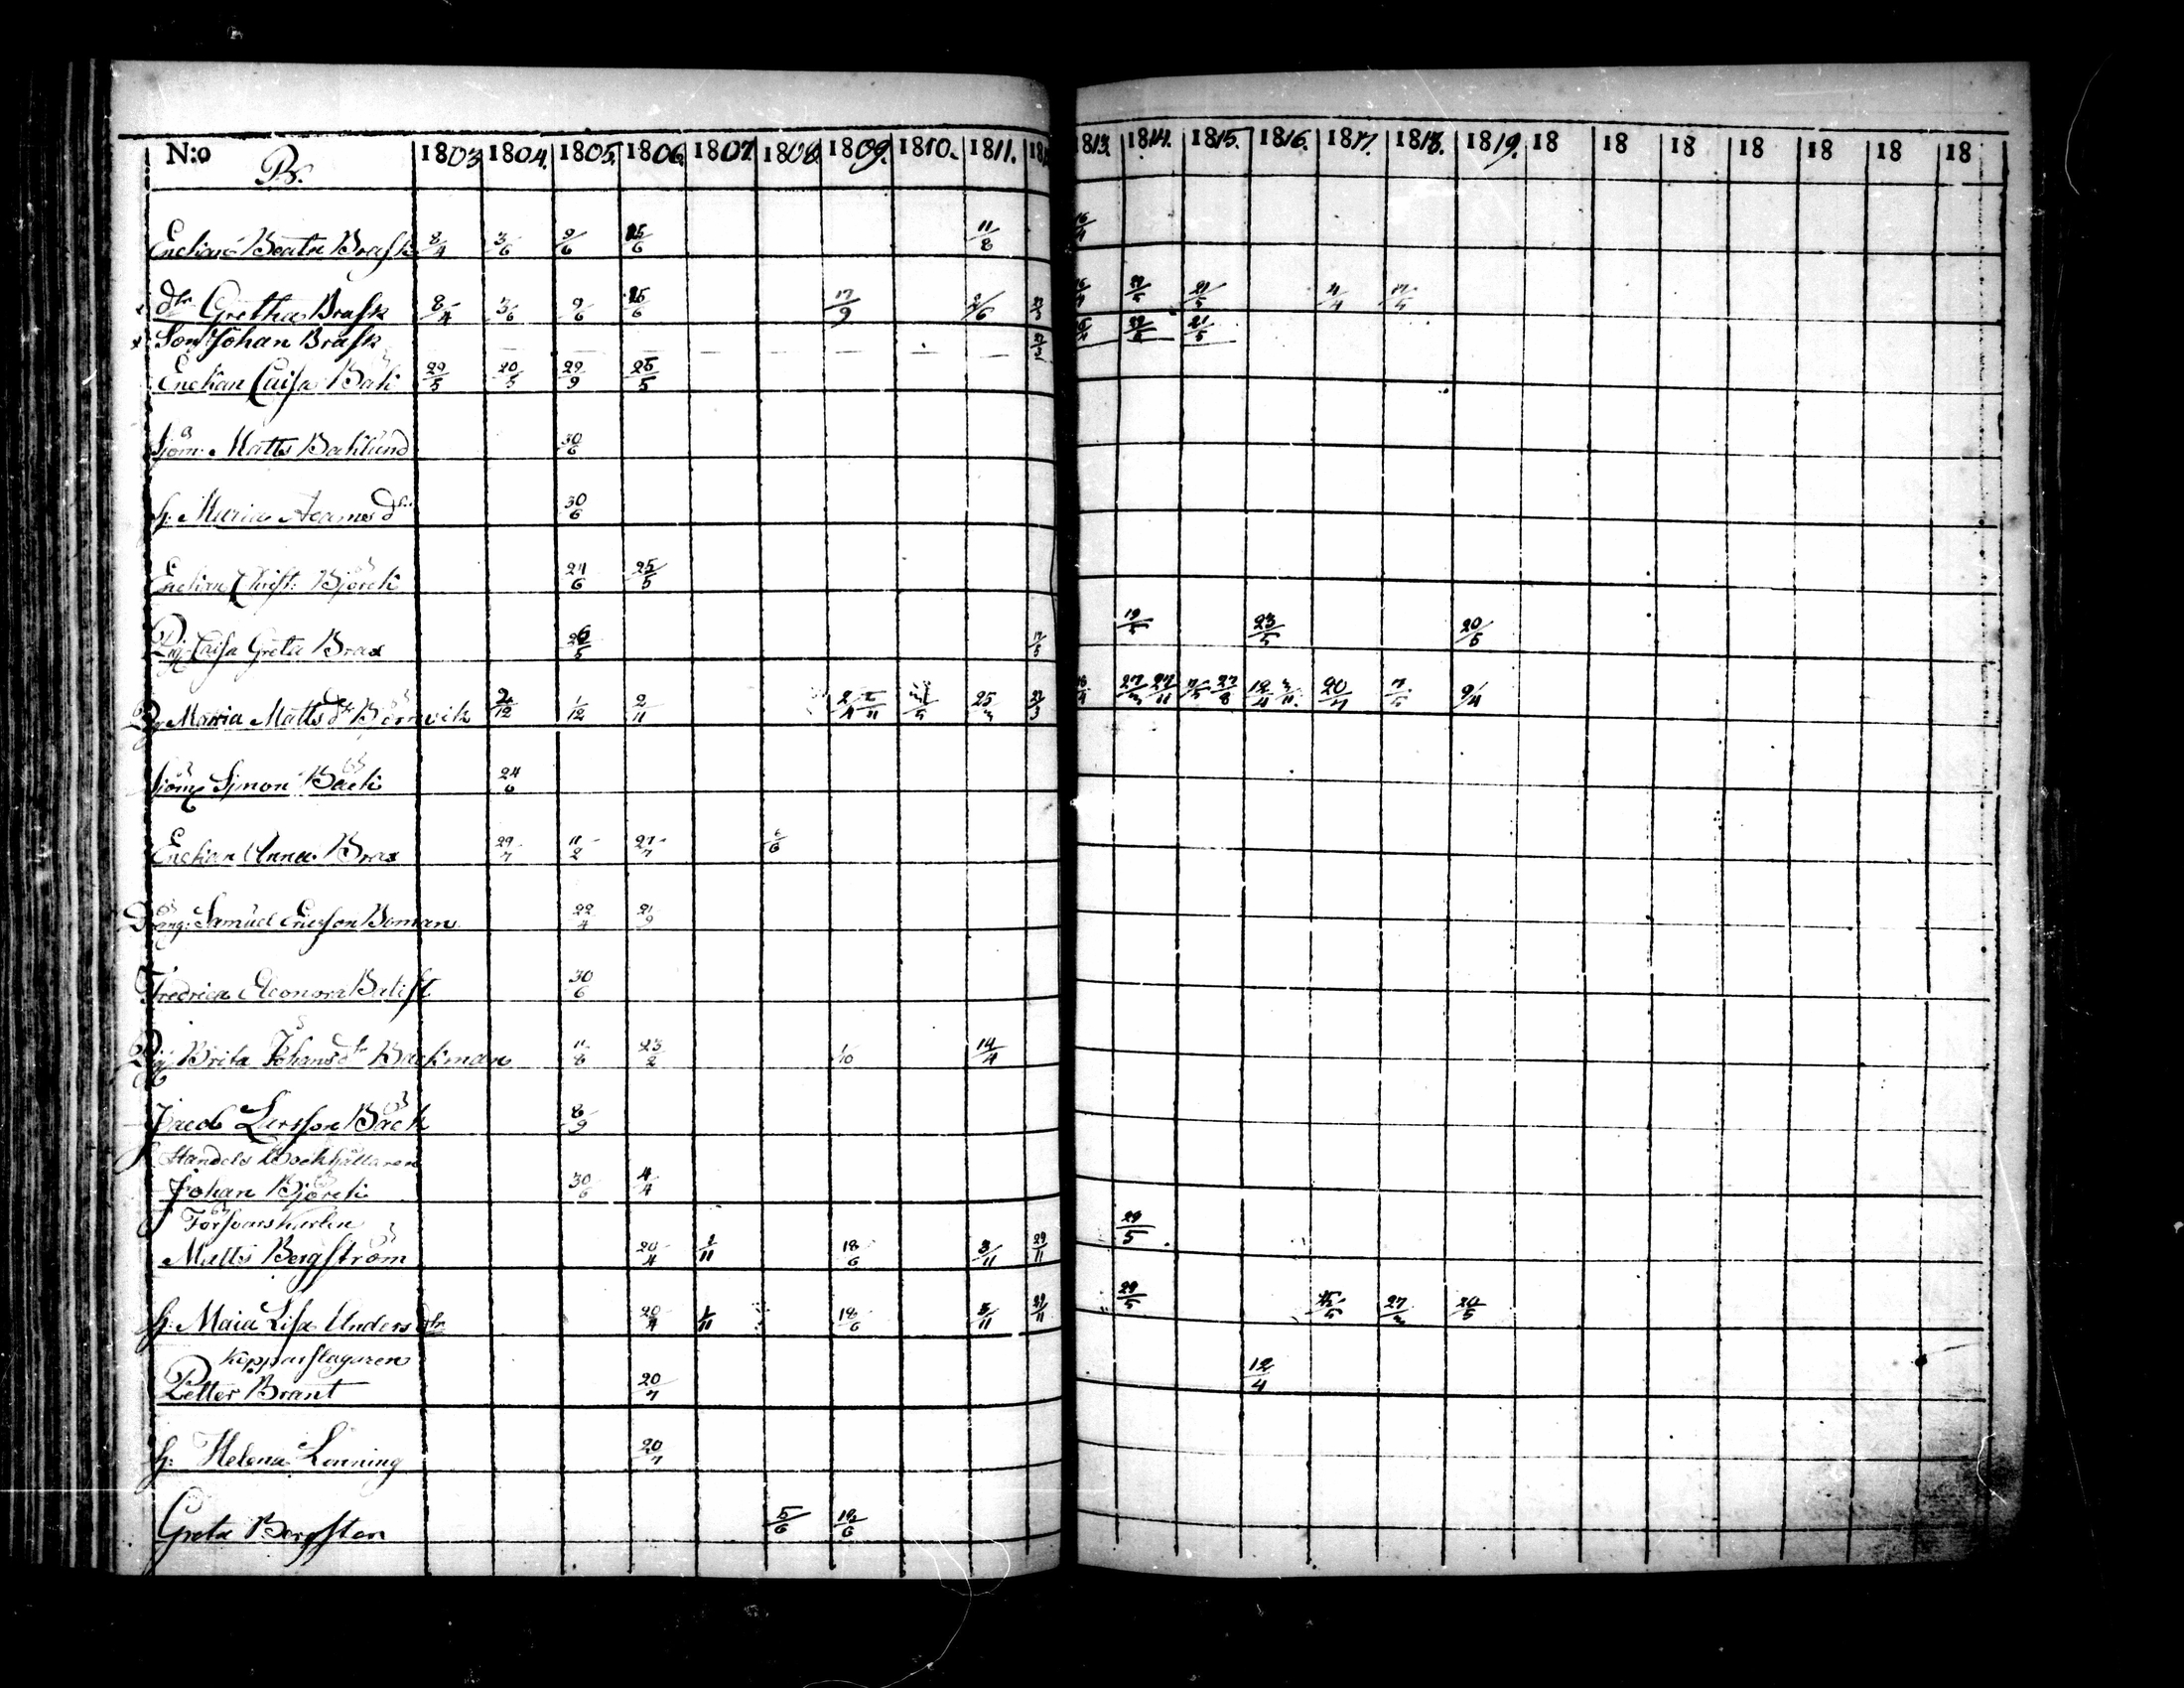 N:o B. 1803 1804. 1805. 1806. 1807. 1808. 1809. 1810. 1811. 181 1813. 1814. 1815. 1816. 1817. 1818. 1819. 18 18 18 18 18 18 18
Enckan Beata Brask 8/4 3/6 9/6 25/6 11/8 16/4
dtr Gretha Brask 8/4 3/6 9/6 25/6 17/9 2/6 21/5 4/4 17/5
Son Johan Brask 22/5 21/5
Enckan Caisa Bäck 29/5 20/5 29/9 25/5
Sjöm. Matts Backlund 30/6
h. Maria Adamsdr 30/6
Enckan Christ: Björck 24/6 25/5
Pig. Caisa Greta Brax 26/5 17/5 19/5 23/5 20/5
Pig Maria Mattsdtr Björnvik 2/12 1/12 2/11 2/4 2/11 25/3 27/3 27/11 27/8 12/4 20/4 9/4
Sjöm Simon Bäck 24/6
Enckan Anna Brax 29/7 11/2 27/7 6/6
Dräng: Samuel Ericsson Boman 22/4 21/9
Fredrica Eleonora Balist 30/6
Pig Brita Johansdtr Backman 11/8 23/2 1/10 14/4
Jacob Larsson Bäck 8/9
Handels Bockhållaren
Johan Björck 30/6 4/4
Försvarskarlen
Matts Bergström 20/4 1/11 18/6 3/11 29/11 29/5
h. Maia Lisa Andersdtr 20/4 1/11 18/6 3/11 29/11 29/5 27/3 20/5
Kopparslagaren
Petter Brant 20/7 12/4
h. Helena Lönning 20/7
Greta Bergsten 5/6 18/6